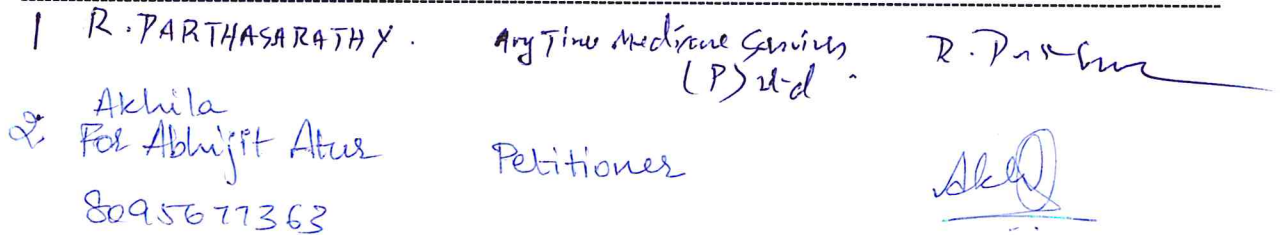 1 R. PARTHASARATHY. Any Time Medicine Services R. Parthas
(P) Ltd.
Akhila
2. For Abhijit Atur Petitioner Akhil
8095677363